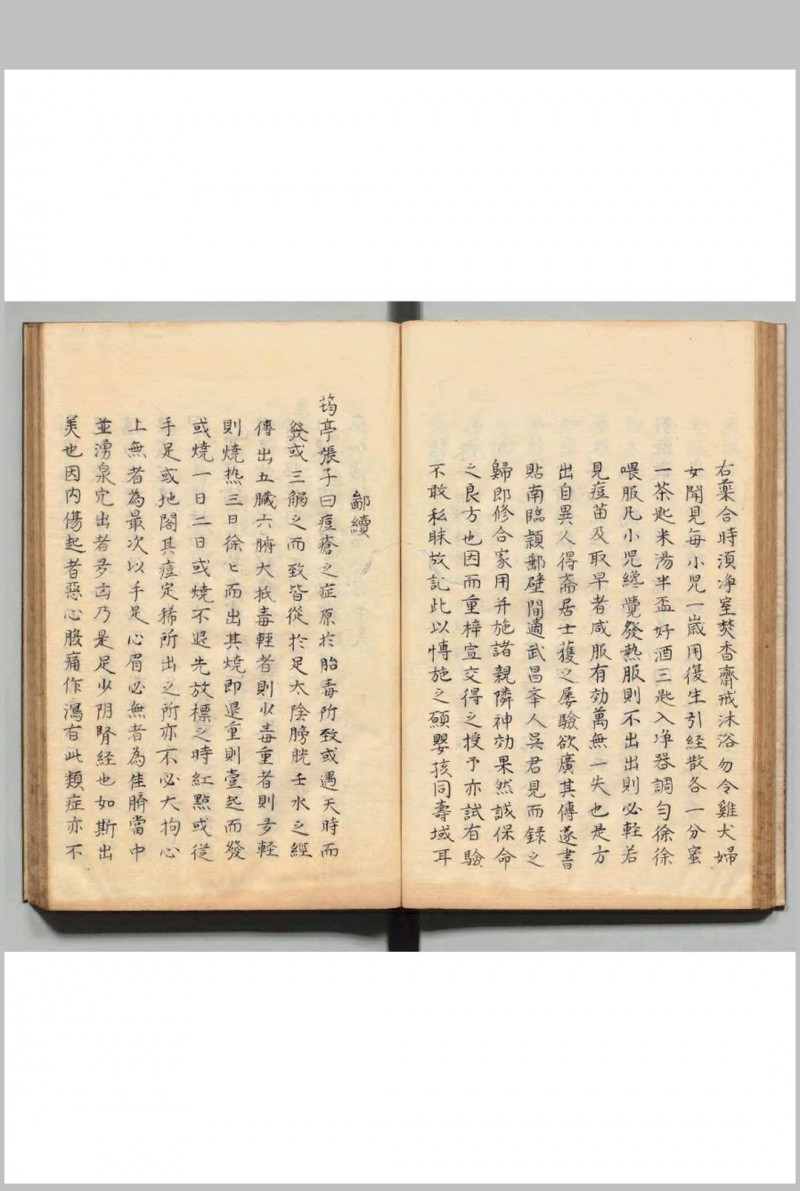 右藥合時須凈室焚香齋戒沐浴勿令雞犬婦
女聞見每小児一嵗用復生引経散各一分蜜
一茶匙米湯半盃好酒三匙入凈器調勻徐徐
喂服凡小児纔覺發热服則不出出則必輊若
見痘苗及取早者咸服有効萬無一失也是方
出自異人得齋居士獲之屡驗欲廣其傳遂書
貼南臨潁郵壁間適武昌辛人吳君見而録之
歸即修合家用并施諸親隣神効果然誠保命
之良方也因而重梓宣交得之授予亦試有驗
不敢私昧故記此以愽施之願嬰孩同壽域耳
鄙續
筠亭張子曰痘瘡之症原於胎毒所致或遇天時而
發或三觸之而致皆從於足太陰膀胱壬水之經
傳出五臟六腑大抵毒輕者則少毒重者則多輕
則燒热三日徐匕而出其燒即退重則壹起而發
或燒一日二日或燒不退先放標之時紅點或從
手足或地閣其痘定稀所出之所亦不必大拘心
上無者為最次以手足心眉必無者為佳臍當中
並湧泉穴出者多凶乃是足少阴腎経也如斯出
美也因内傷起者惡心腹痛作瀉有此類症亦不